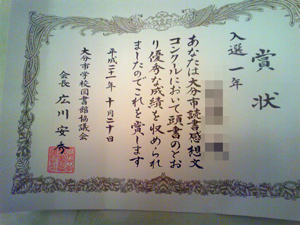 賞状
入選一年
あなたは大分市読書感想文
コンクールにおいて頭書のとお
り優秀な成績を収められ
ましたのでこれを賞します
平成二十一年十月二十日
大分市学校図書館協議会
会長 広川安秀